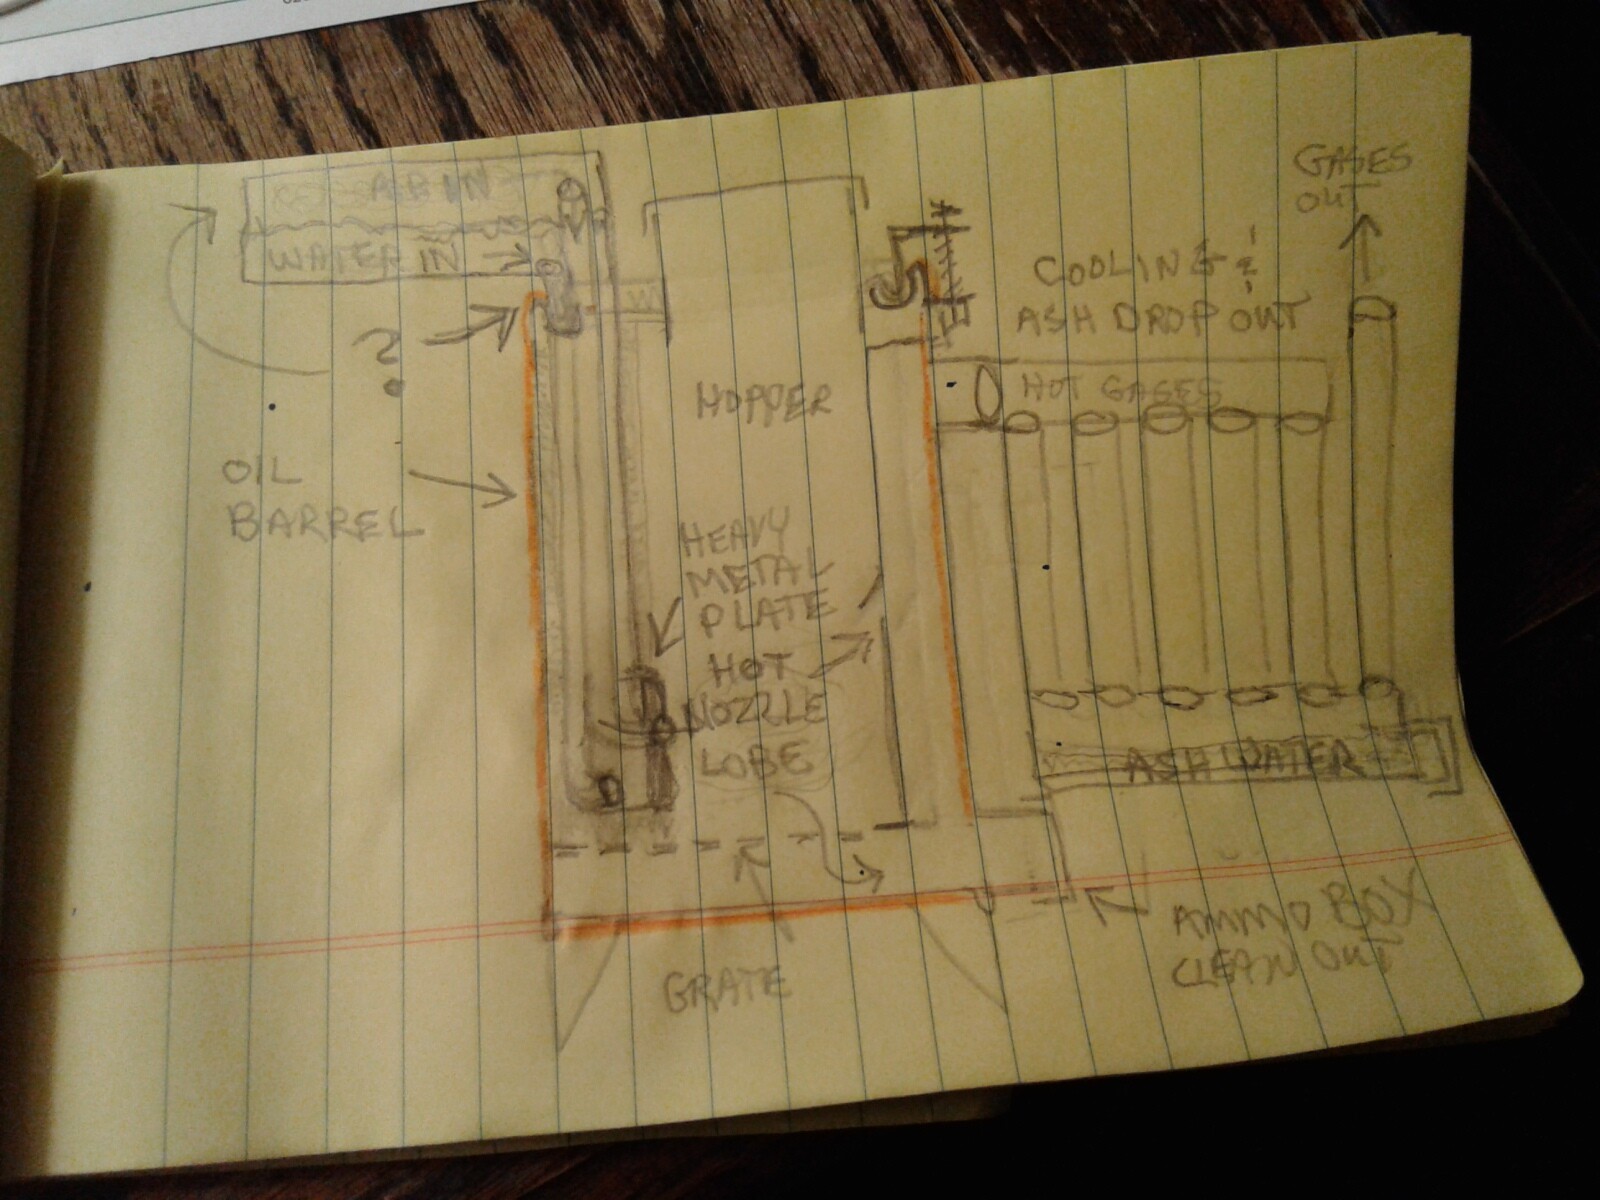 AIR IN
WATER IN
?
OIL
BARREL
HOPPER
HEAVY
METAL
PLATE
HOT
NOZZLE
LOBE
GRATE
COOLING &
ASH DROP OUT
HOT GASES
GASES
OUT
ASH WATER
AMMO BOX
CLEAN OUT